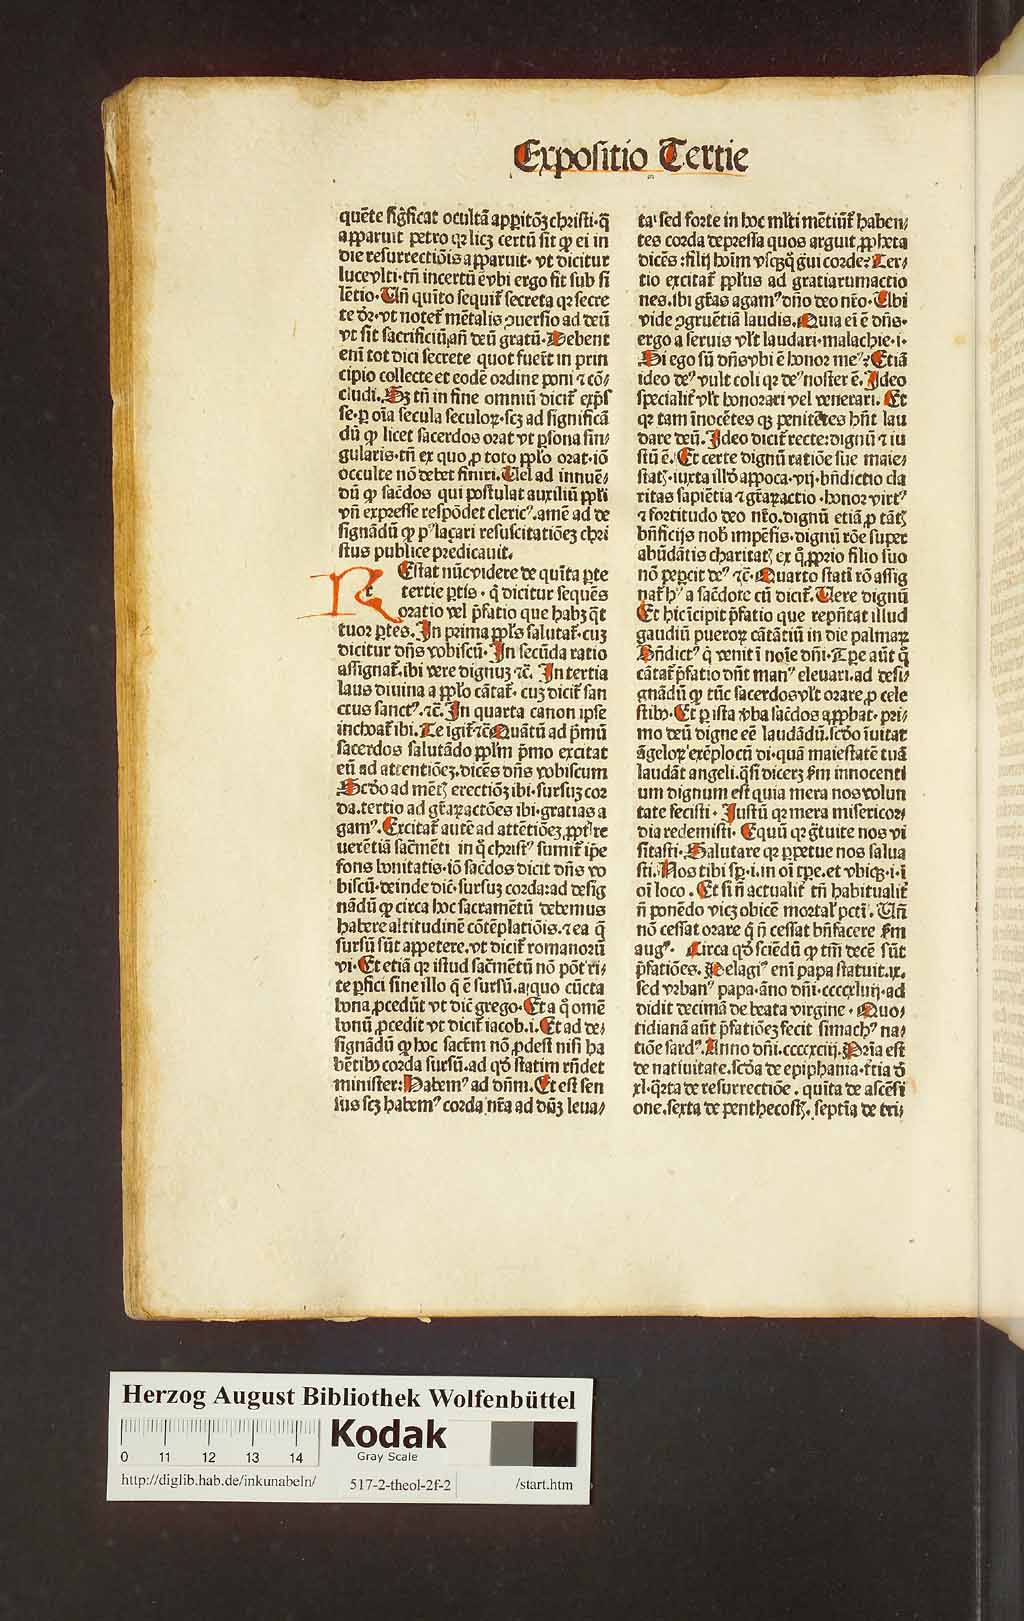 Expositio Tertie
quēte sig̃ficat ocultā appitōꝫ christi·q̄
apparuit petro qꝛ licꝫ certū sit ꝙ ei in
die resurrectiōis apparuit· vt dicitur
luce vlti·tñ incertū ē vbi ergo fit sub si
lētio·Uñ quito sequit̃ secreta qꝛ secre
te dꝛ·vt notet̃ mētalis ꝯuersio ad deū
vt sit sacrificiū añ deū gratū·Debent
eni̅ tot dici secrete quot fuer̃t in prin
cipio collecte et eodē ordine poni ⁊ cō⸗
cludi. Sꝫ tñ in fine omniū dicit̃ exp̃s
se·ꝑ oīa secula seculoꝝ·scꝫ ad significā
dū ꝙ licet sacerdos orat vt ꝑsona sin⸗
gularis·tñ ex quo ꝓ toto pplo orat·iō
occulte nō debet finiri. Uel ad innuē⸗
dū ꝙ sac̃dos qui postulat auxiliū ppli
vñ expresse respōdet cleric⁹.amē ad de
signādū ꝙ p⁹ laçari resuscitatiōeꝫ chri
stus publice predicauit.
REstat nūc videre de quīta ꝑte
tertie ꝑtis · q̄ dicitur sequēs
oratio vel p̃fatio que habꝫ q̄t
tuor ꝑtes. In prima pplꝰs salutat̃· cuꝫ
dicitur dñs vobiscū· In secūda ratio
assignat̃.ibi vere dignuꝫ ⁊c̃. In tertia
laus diuina a pplo cātat̃· cuꝫ dicit̃ san
ctus sanct⁹.⁊c̃. In quarta canon ipse
inchoat̃ ibi. Te igit̃ ⁊c̃ Quātū ad p̃mū
sacerdos salutādo pplm̃ p̃mo excitat
eū ad attentiōeꝫ.dicēs dñs vobiscum
Scd̃o ad mētꝭ erectiōꝫ ibi·sursuꝫ cor
da.tertio ad gr̃aꝝ actōes ibi·gratias a
gam⁹. Excitat̃ autē ad attētiōeꝫ ꝓpt̃ re
uerētiā sac̃mēti in q̄ christ⁹ sumit̃ ip̃e
fons bonitatis·iō sac̃dos dicit dñs vo
biscū·deinde dic̃·sursuꝫ corda:ad desig
nādū ꝙ circa hoc sacramētū debemus
habere altitudinē cōtēplatiōis.⁊ ea q̄
sursū sūt appetere.vt dicit̃ romanorū
vi· Et etiā qꝛ istud sac̃mētū nō pōt ri⸗
te ꝑfici sine illo q̄ ē sursū.a quo cūcta
bona ꝓcedūt vt dic̃ grego· Et a q̄ omē
bonū ꝓcedit vt dicit̃ iacob.i. Et ad de⸗
signādū ꝙ hoc sac̃m nō ꝓdest nisi ha
bētibꝫ corda sursū.ad qd̃ statim rñdet
minister: Habem⁹ ad dñm. Et est sen
sus scꝫ habem⁹ corda nr̃a ad dñꝫ leua⸗
ta·sed forte in hoc ml̃ti mētiūt̃ haben⸗
tes corda depressa quos arguit ꝓpheta
dicēs:filij hoīm vsqꝫq̄ g̃ui corde? Ter⸗
tio excitat̃ pplꝰs ad gratiarumactio
nes.ibi gr̃as agam⁹ dño deo nr̃o· Ubi
vide ꝯgruētiā laudis. Quia ei̅ ē dñs·
ergo a seruis vlt̃ laudari·malachie·i·
Si ego sū dñs vbi ē honor me⁹? Etiā
ideo de⁹ vult coli qꝛ de⁹ noster ē. Ideo
specialit̃ vlt̃ honorari vel venerari. Et
qꝛ tam īnocētes qꝫ penitētes hñt lau
dare deū. Ideo dicit̃ recte:dignū ⁊ iu
stū ē. Et certe dignū ratiōe sue maie⸗
statꝭ·iuxta illd̃ appoca·vij·bñdictio cla
ritas sapiētia ⁊ gr̃aꝝ actio·honor virt⁹
⁊ fortitudo deo nr̃o.dignū etiā ꝓ tātꝭ
bñficijs nob̃ impēsis·dignū rōe super
abūdātis charitatꝭ ex q̄ ꝓprio filio suo
nō peꝑcit de⁹ ⁊c̃· Quarto stati rō assig
nat̃ h⁹ a sac̃dote cū dicit̃. Uere dignū
Et hic īcipit p̃fatio que rep̃ntat illud
gaudiū pueroꝝ cātātiū in die palmaꝝ
Bñdict⁹ q̄ venit ī noīe dñi·Tꝑe aūt q̄
cātat̃ p̃fatio dñt man⁹ eleuari.ad desi⸗
gnādū ꝙ tūc sacerdos vlt̃ orare ꝓ cele
stibꝫ· Et ꝑ ista v̓ba sac̃dos approbat·pri⸗
mo deū digne eē laudādū.scd̃o īuitat
āgeloꝝ exēplo cū di·quā maiestatē tuā
laudāt angeli.q̄si dicerꝫ ẜm innocenti
um dignum est quia mera nos volun
tate fecisti · Justū qꝛ mera misericor⸗
dia redemisti· Equū qꝛ g̃tuite nos vi
sitasti· Salutare qꝛ ꝑpetue nos salua
sti. Nos tibi sꝑ·i.in oī tꝑe.et vbiqꝫ·i·ī
oī loco · Et si ñ actualit̃ tñ habitualit̃
ñ ponēdo vicꝫ obicē mortal̃ pctī. Uñ
nō cessat orare q̄ ñ cessat bñfacere ẜm
aug⁹· Circa qd̃ sciēdū ꝙ tm̄ decē sūt
p̃fatiōes. Pelagi⁹ eni̅ papa statuit.ix.
sed vrban⁹ papa·āno dñi·ccccxliiij·ad
didit decimā de beata virgine · Quo⸗
tidianā aūt p̃fatiōeꝫ fecit simach⁹ na⸗
tiōe sard⁹. Anno dñi.ccccxciij. Prīa est
de natiuitate.scd̃a de epiphania·t̃tia d̃
xl·q̄rta de resurrectiōe · quīta de ascēsi
one.sexta de penthecostꝭ. septīa de tri⸗
Herzog August Bibliothek Wolfenbüttel
0 11 12 13 14
Kodak
Gray Scale
http://diglib.hab.de/inkunabeln/ 517-2-theol-2f-2 /start.htm